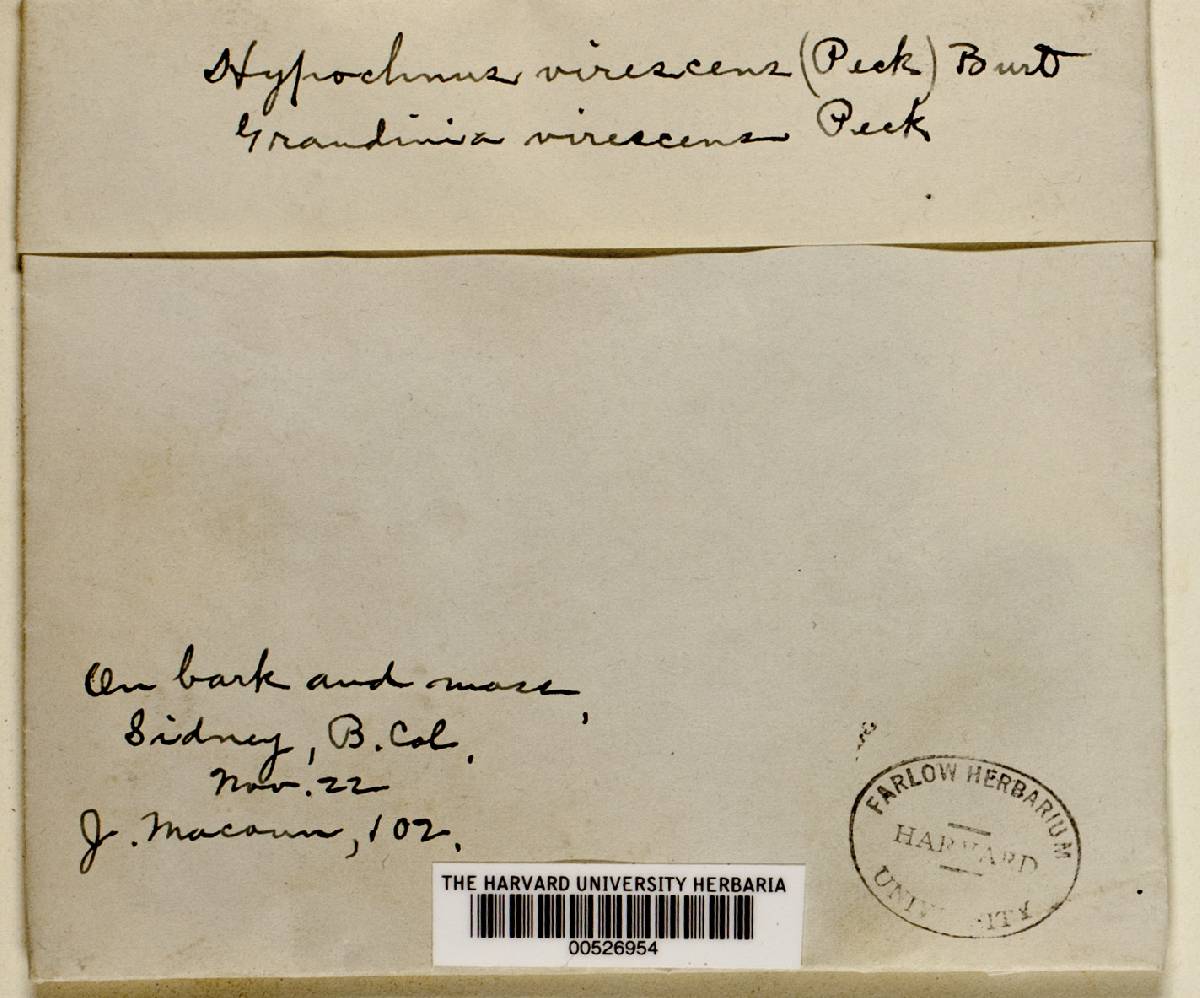 Hypochnus virescens (Peck) Burt
Grandinia virescens Peck
On bark and moss,
Sidney, B. Col.
Nov. 22
J. Macoun, 102.
FARLOW HERBARIUM
HARVARD
UNIVERSITY
THE HARVARD UNIVERSITY HERBARIA
00526954